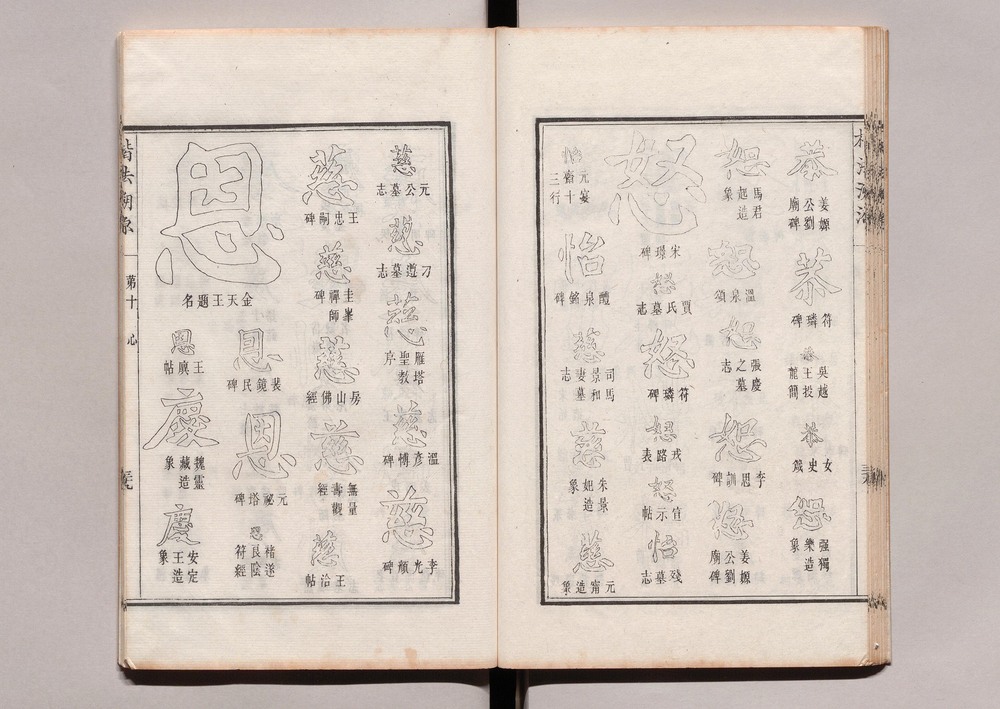 恭
姜嫄
公劉
廟碑
恭
符璘碑
恭
吳越
王投
龍簡
恭
女史箴
强獨
樂造
象
恕
馬君
起造
象
恕
溫泉頌
恕
張慶
之墓
志
恕
李思訓碑
恕
姜嫄
公劉
廟碑
怒
宋璟碑
怒
賈氏墓志
怒
符璘碑
怒
戎路表
怒
宣示帖
怡
殘墓志
怡
元寗
三十
行
怡
醴泉銘碑
慈
司馬
景和
妻墓
志
慈
朱景
妃造
象
慈
元甯造象
慈
元公墓志
慈
刁遵墓志
慈
雁塔
聖教
序
慈
溫彥博碑
慈
李光顏碑
慈
王忠嗣碑
慈
圭峯
禪師
碑
慈
房山佛經
慈
無量
壽觀
經
慈
王洽帖
恩
金天王題名
恩
裴鏡民碑
恩
元祕塔碑
恩
褚遂
良陰
符經
恩
王廙帖
慶
魏靈
藏造
象
慶
安定
王造
象
楷法溯原
第十
心